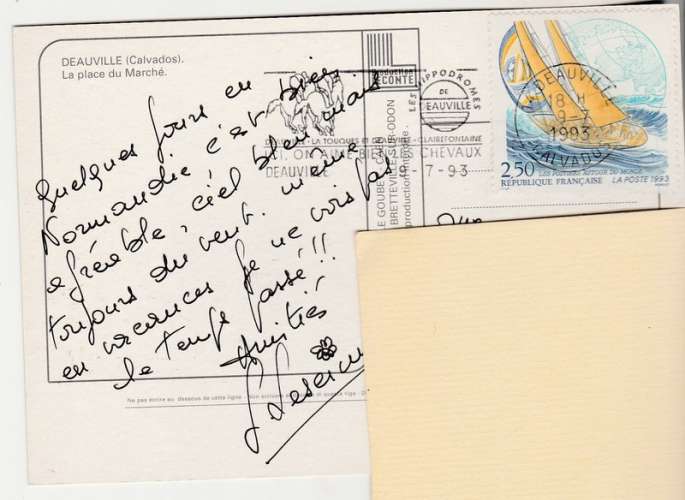 DEAUVILLE (Calvados).
La place du Marché.
Quelques jours en
Normandie c'est bien
agréable, ciel bleu mais
toujours du vent. même
en vacances je ne vois pas
le temps passé!!
Amitiés
production
LECONTE
LES HIPPODROMES
DE
DEAUVILLE
LA TOUQUES ET DEAUVILLE - CLAIREFONTAINE
ICI, ON AIME BIEN LES CHEVAUX
DEAUVILLE 19-7-93
DEAUVILLE
18 H
9-7
1993
CALVADOS
2,50
LES POSTIERS AUTOUR DU MONDE
RÉPUBLIQUE FRANÇAISE LA POSTE 1993
BRETTEVILLE-SUR-ODON
Ne pas écrire au dessous de cette ligne